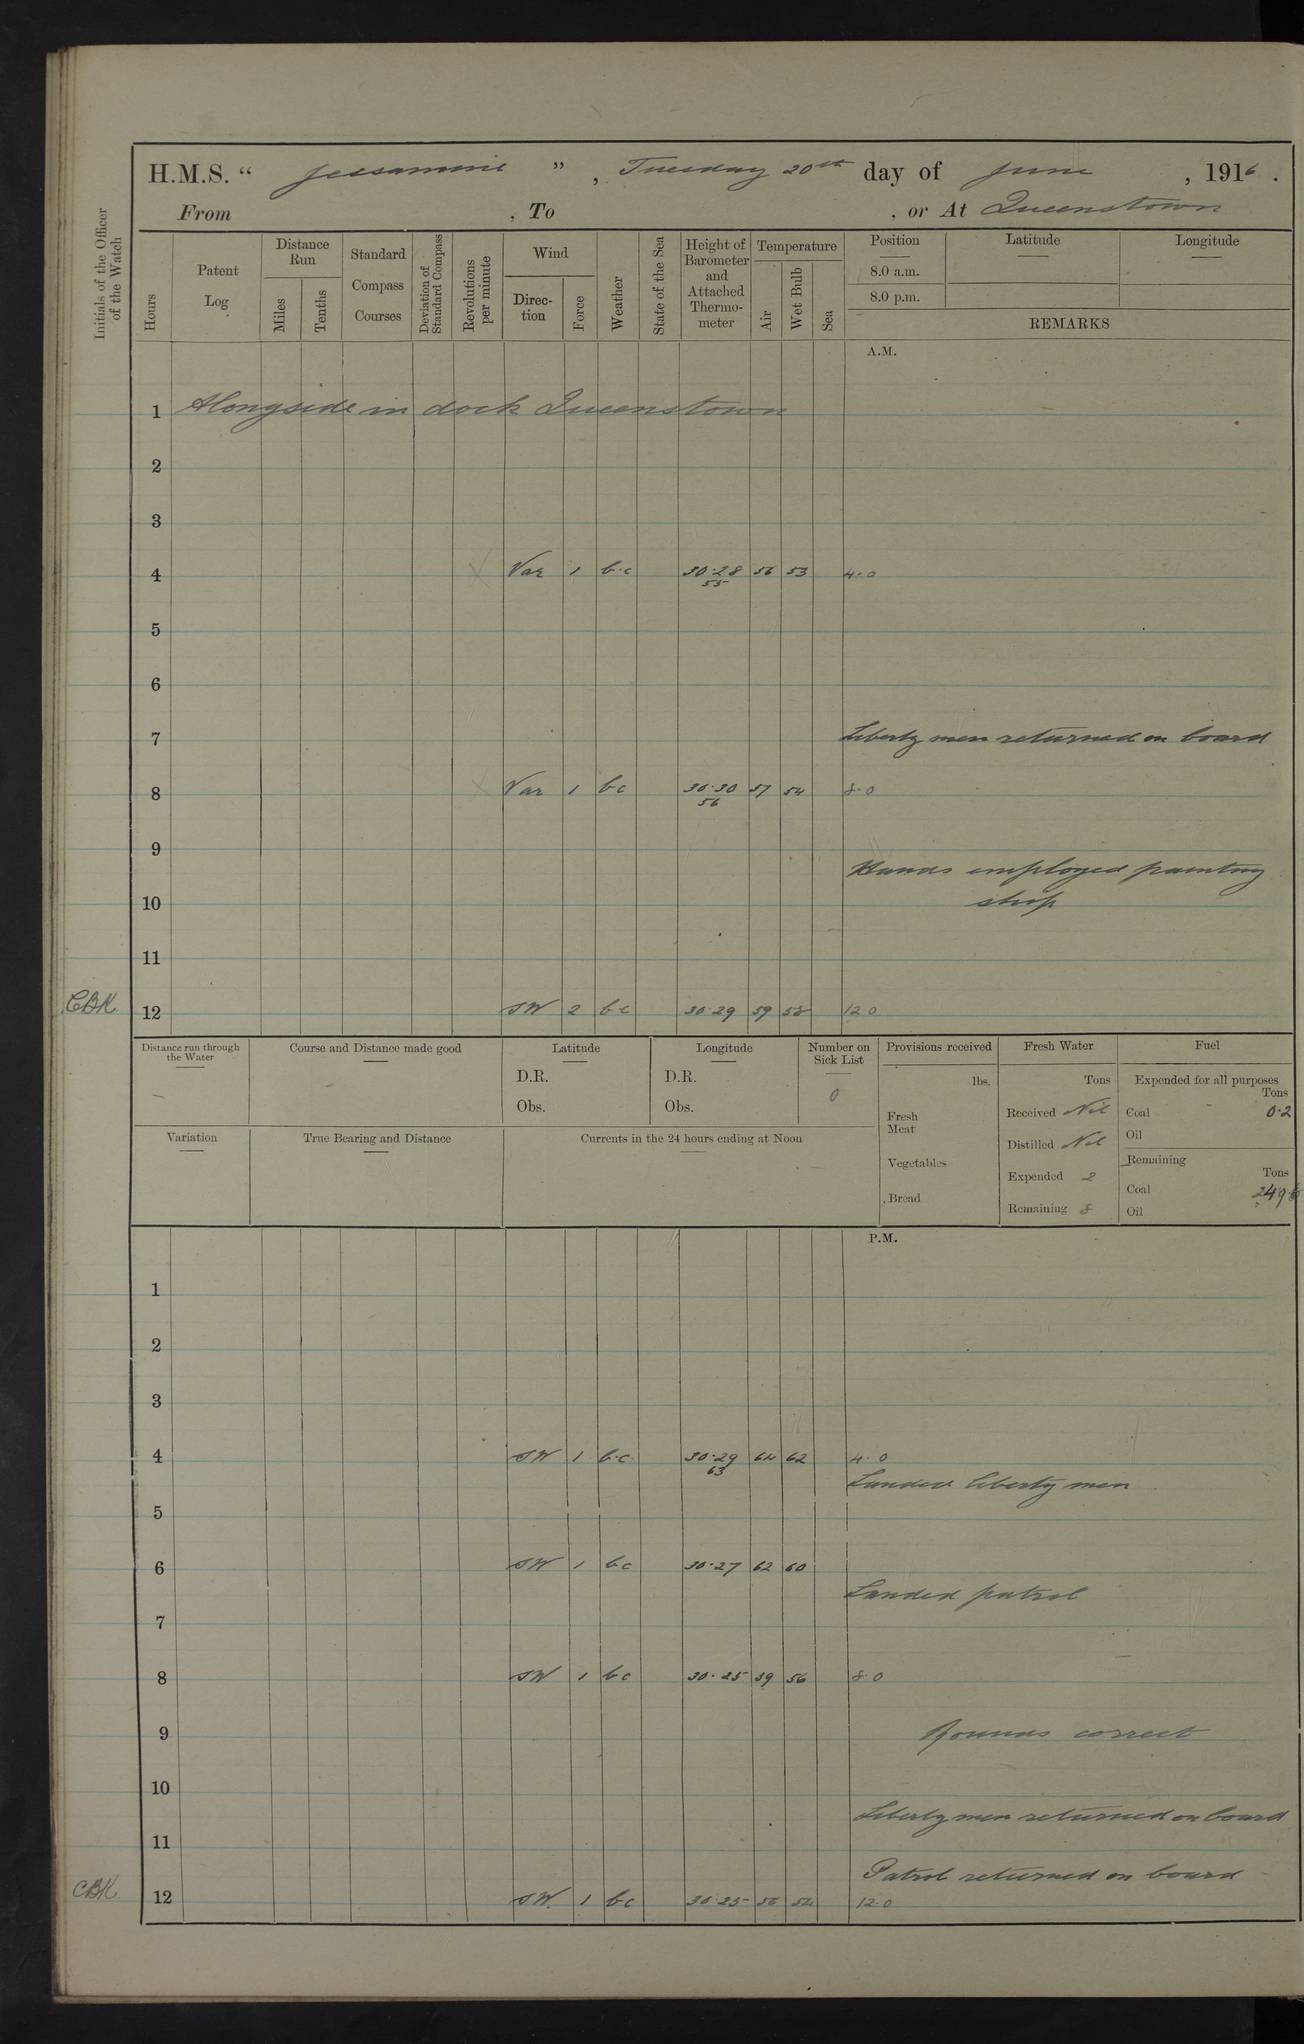 H.M.S. “ Jessamine ”, Tuesday 20th day of June, 1916.
From , To , or At Queenstown
Initials of the Officer of the Watch
Hours
Patent Log
Distance Run
Miles
Tenths
Standard Compass Courses
Deviation of Standard Compass
Revolutions per minute
Wind
Direc-tion
Force
Weather
State of the Sea
Height of Barometer and Attached Thermo-meter
Temperature
Air
Wet Bulb
Sea
Position Latitude Longitude
8.0 a.m.
8.0 p.m.
REMARKS
A.M.
1 Alongside in dock Queenstown
2
3
4 Var 1 b.c 30.28 56 53 4.0
55
5
6
7 Liberty men returned on board
8 Var 1 bc 30.30 57 54 8.0
56
9
Hands employed painting
10 ship
11
CBK 12 SW 2 bc 30.29 59 58 12.0
Distance run through the Water
Course and Distance made good
Latitude
D.R.
Obs.
Longitude
D.R.
Obs.
Number on Sick List
0
Provisions received
lbs.
Fresh Meat
Vegetables
Bread
Fresh Water
Tons
Received Nil
Distilled Nil
Expended 2
Remaining 8
Fuel
Expended for all purposes
Tons
Coal 0.2
Oil
Remaining
Tons
Coal
Oil
Variation
True Bearing and Distance
Currents in the 24 hours ending at Noon
P.M.
1
2
3
4 SW 1 b.c. 30.29 64 62 4.0
63
Landed liberty men
5
6 SW 1 bc 30.27 62 60
Landed patrol
7
8 SW 1 bc 30.25 59 56 8.0
9 Rounds correct
10
Liberty men returned on board
11
Patrol returned on board
CBK 12 SW. 1 bc 30.25 56 54 12.0